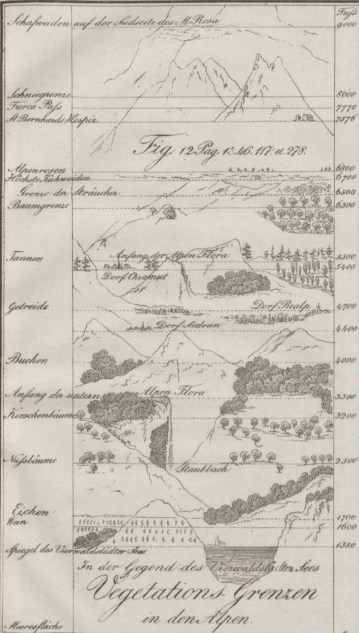 Fuss
Schafweiden auf der Südseite des M. Rosa 9000
Schneegrenze 8000
Furca Pass 7770
St Bernhards Hospiz 7576
Fig. 12 Pag. 1. 46. 117. u. 278.
Alpenrosen 6800
Höchste Kühweiden 6700
Grenze der Sträucher 6500
Baumgrenze 6300
Anfang der Alpen Flora
Tannen 5500
5400
Dorf Chiamut
Getreide Dorf Realp 4700
Dorf Sedrun 4400
Buchen 4000
Anfang der untern Alpen Flora 3500
Kirschenbäume 3200
Nussbäume 2500
Staubbach
Eichen 1700
Wein 1600
Spiegel des Vierwaldstädter Sees 1350
In der Gegend des Vierwaldstädter Sees
Vegetations Grenzen
in den Alpen.
Meeresfläche